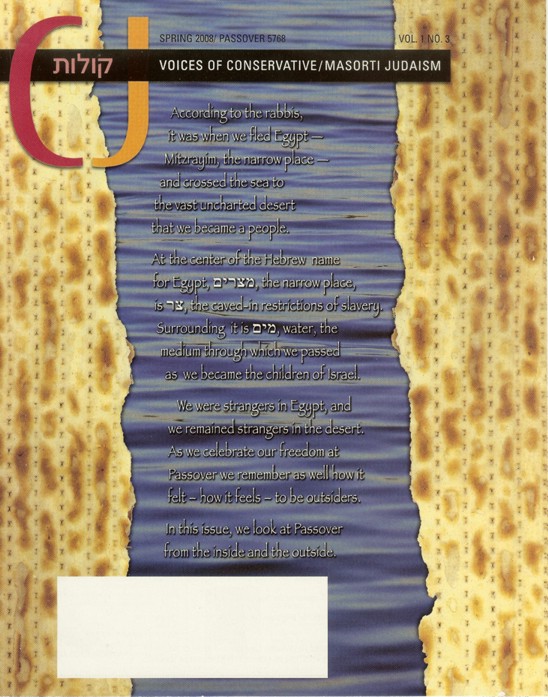 SPRING 2008/ PASSOVER 5768 VOL. 1 NO. 3
CJ
קולות VOICES OF CONSERVATIVE/MASORTI JUDAISM
According to the rabbis,
it was when we fled Egypt —
Mitzrayim, the narrow place —
and crossed the sea to
the vast uncharted desert
that we became a people.
At the center of the Hebrew name
for Egypt, מצרים, the narrow place,
is צר, the caved-in restrictions of slavery.
Surrounding it is מים, water, the
medium through which we passed
as we became the children of Israel.
We were strangers in Egypt, and
we remained strangers in the desert.
As we celebrate our freedom at
Passover we remember as well how it
felt – how it feels – to be outsiders.
In this issue, we look at Passover
from the inside and the outside.